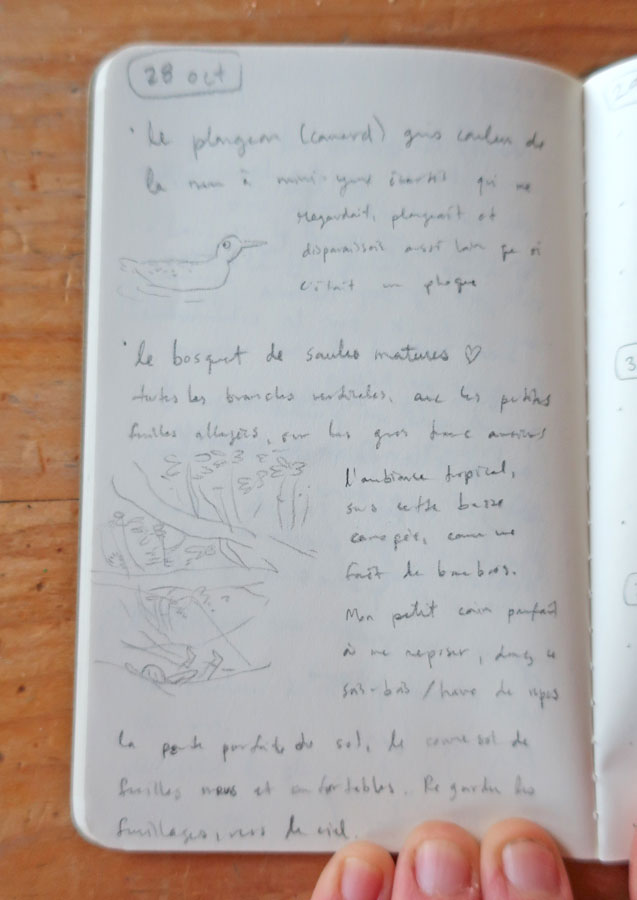 28 oct
• Le plongeon (canard) gris couleur de
la mer à mini-yeux écartés qui me
regardait, plongeait et
disparaissait aussi loin que si
c'était un phoque
• Le bosquet de saules matures ♡
toutes les branches verticales, avec les petites
feuilles allongées, sur les gros troncs anciens
l'ambiance tropical,
sous cette basse
canopée, comme une
forêt de bambous.
Mon petit coin parfait
à me reposer, dans ce
sous-bois / havre de repos
la pente parfaite du sol, le couvre sol de
feuilles mous et confortables. Regarder les
feuillages, vers le ciel.